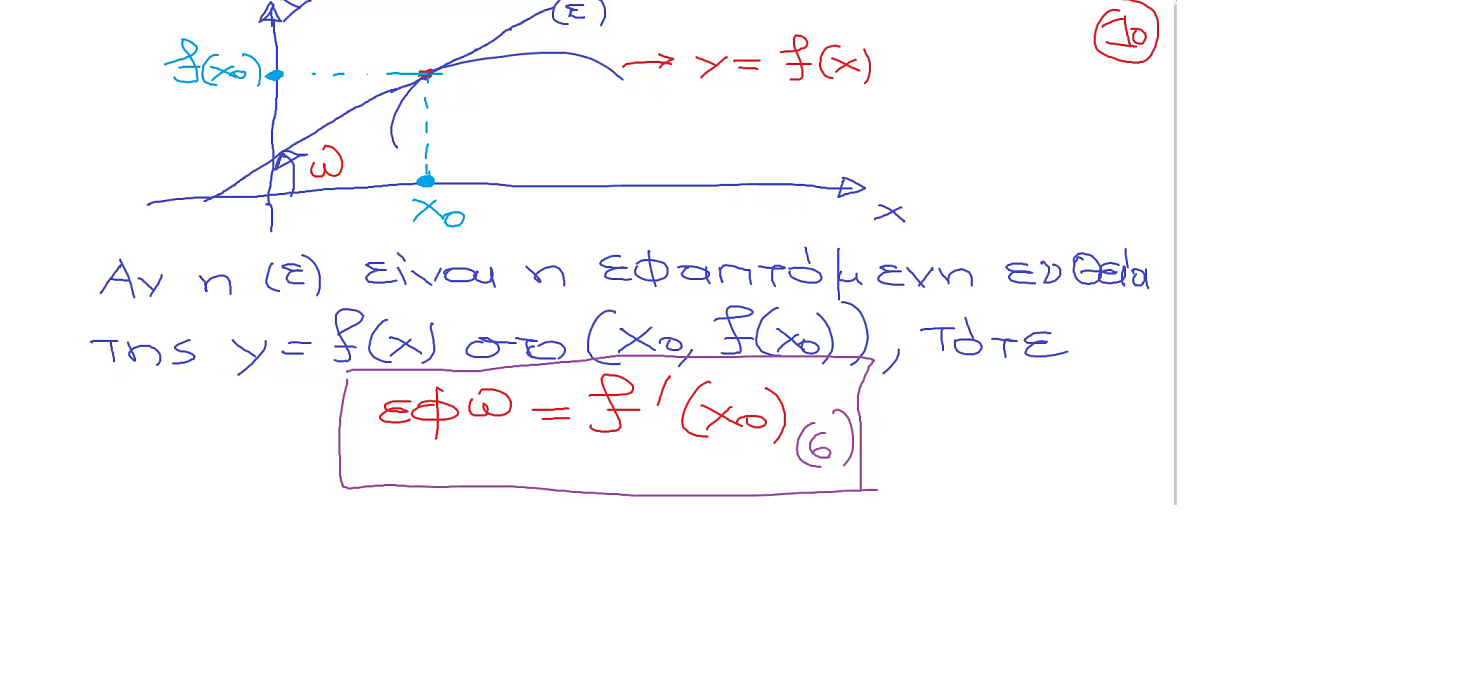 y (ε) 10
f(x₀) → y = f(x)
ω
x₀ x
Αν η (ε) είναι η εφαπτόμενη ευθεία
της y = f(x) στο (x₀, f(x₀)), τότε
εφω = f'(x₀) (6)